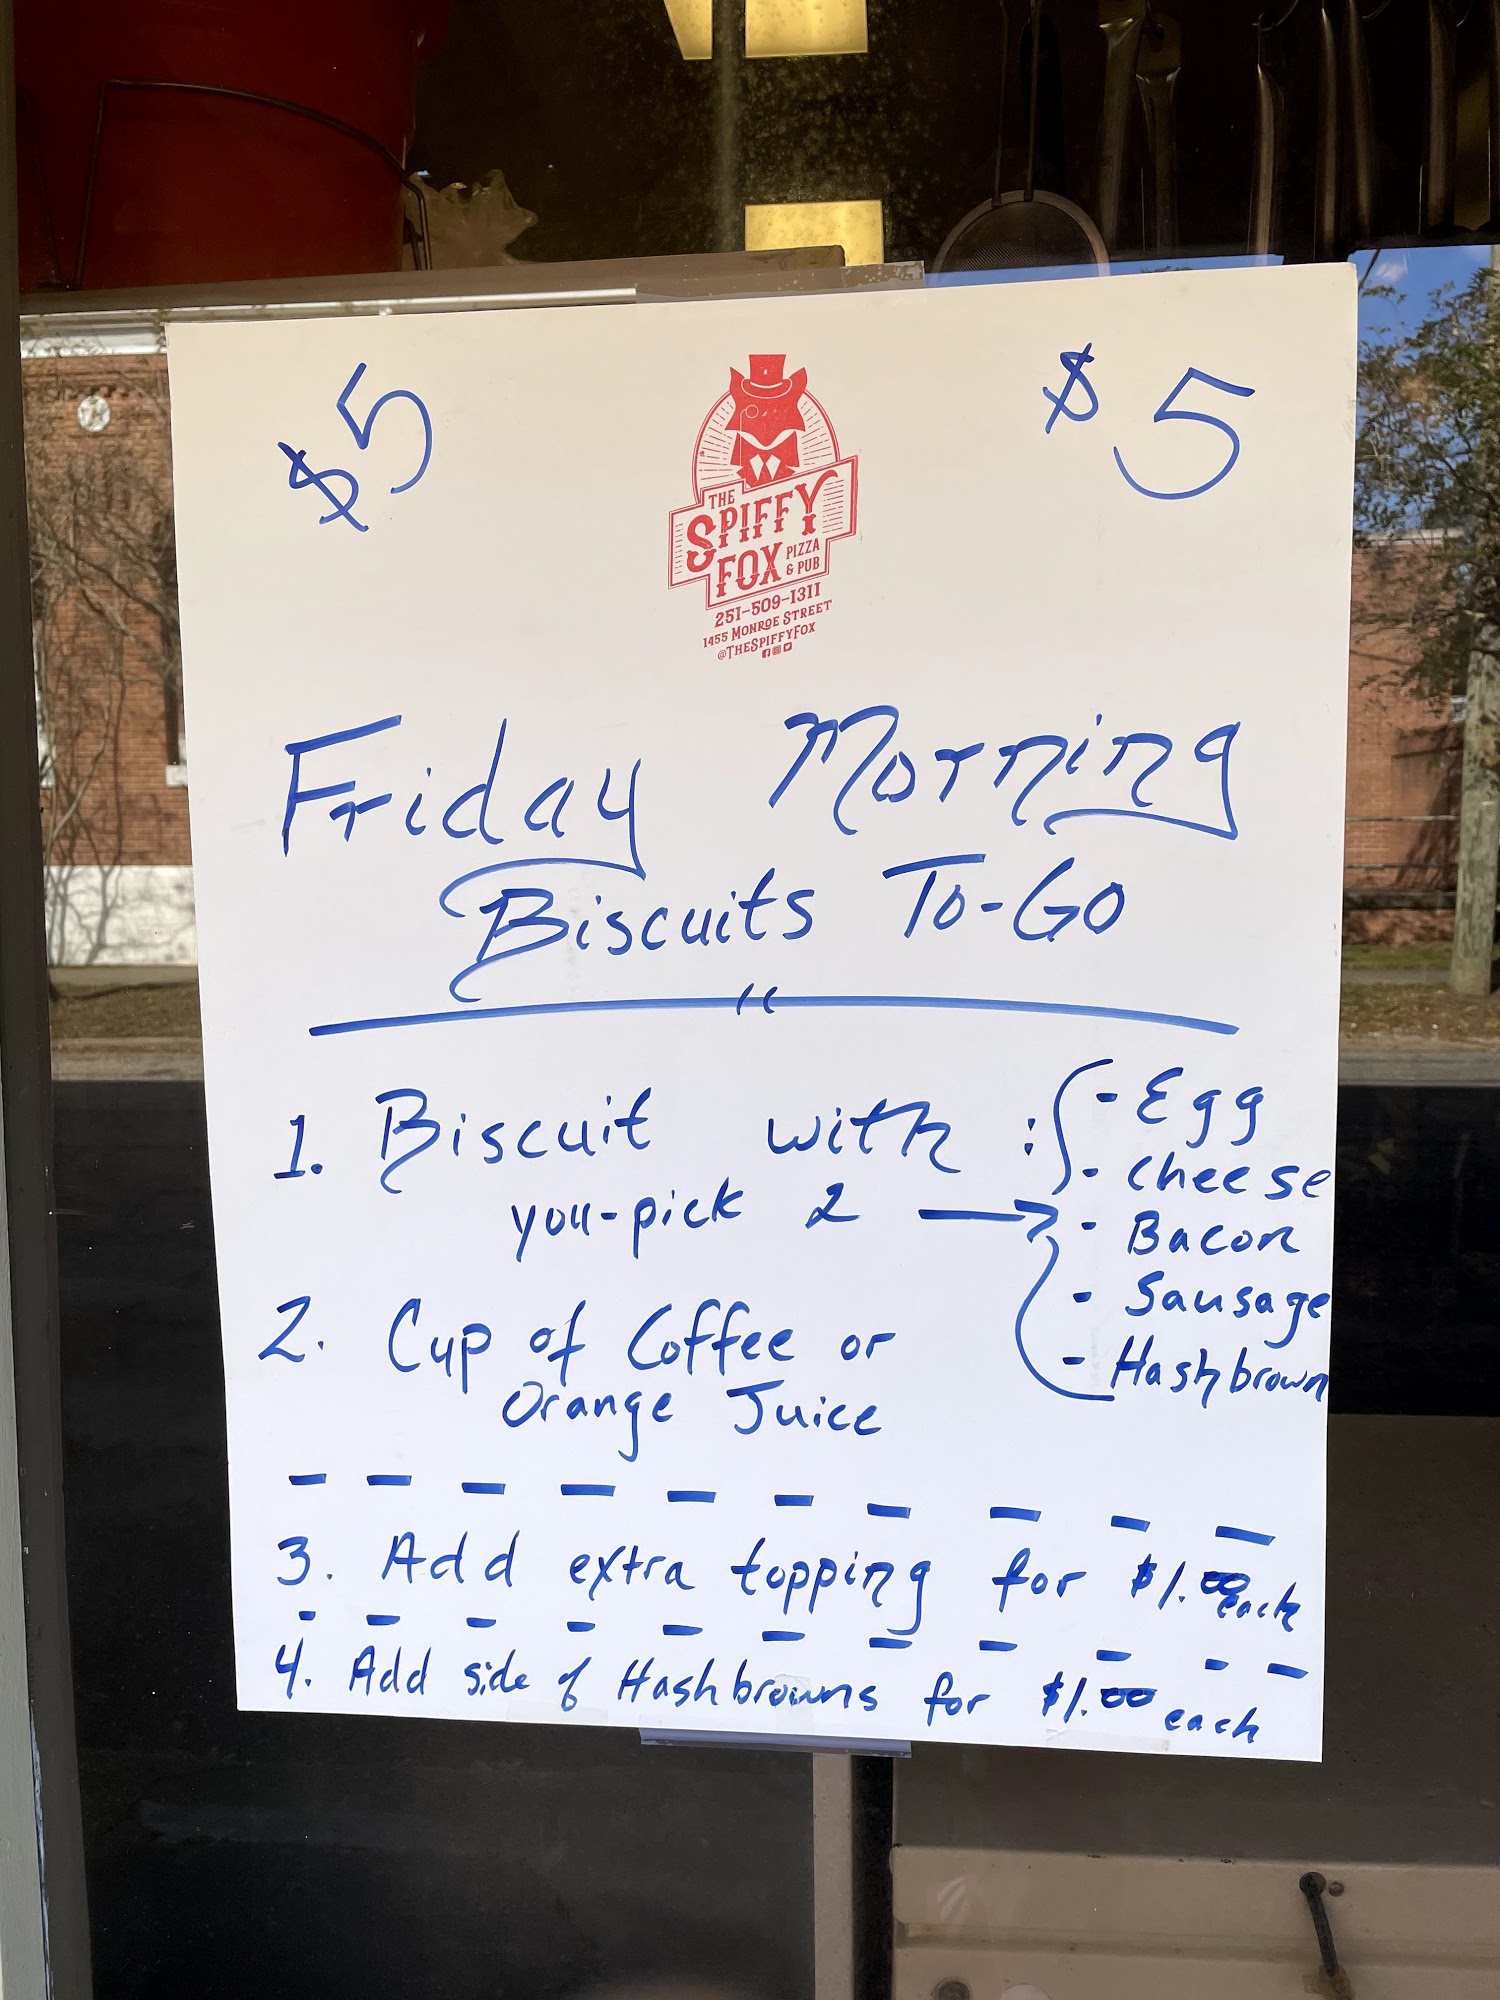 $5
$5
THE
SPIFFY
FOX PIZZA & PUB
251-509-1311
1455 MONROE STREET
@THESPIFFYFOX
Friday Morning
Biscuits To-Go
1. Biscuit with :
you-pick 2 →
- Egg
- Cheese
- Bacon
- Sausage
- Hashbrown
2. Cup of Coffee or
Orange Juice
3. Add extra topping for $1.00 each
4. Add side of Hashbrowns for $1.00 each